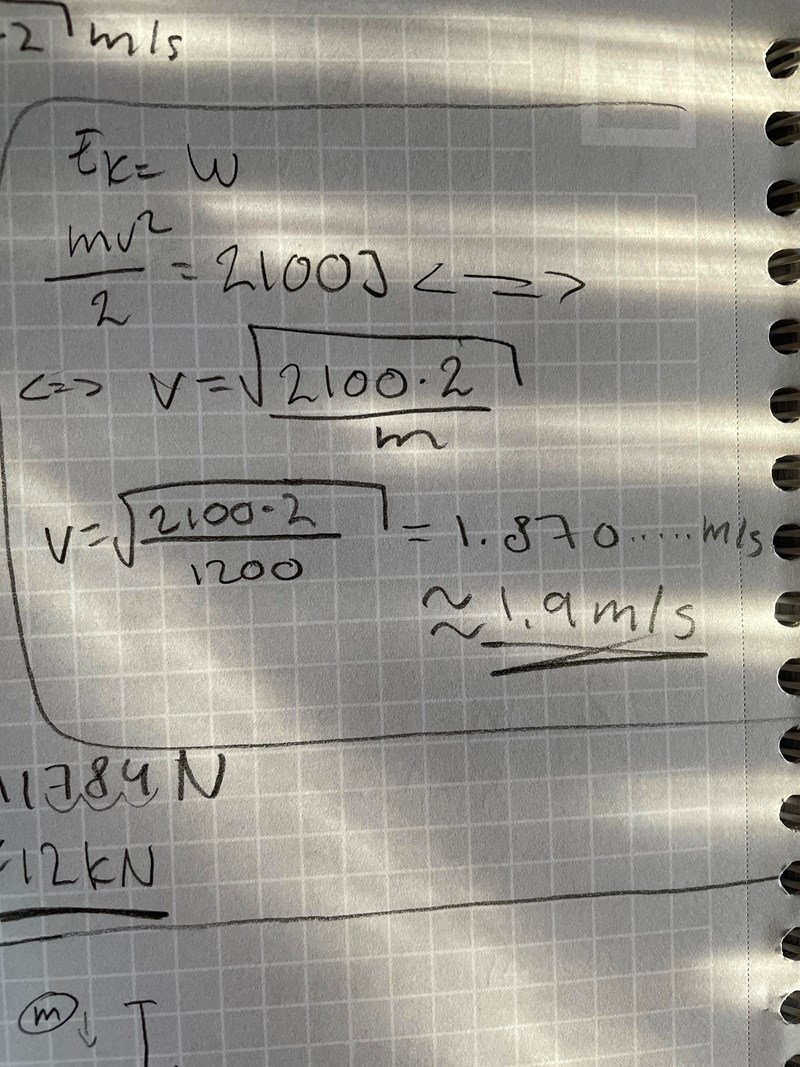 .2 m/s
Ek= W
mv²
/2 = 2100J <=>
<=> v=√(2100·2
/m)
v=√(2100·2
/1200) = 1.870..... m/s
≈ 1.9 m/s
11784 N
12kN
m ↓ T